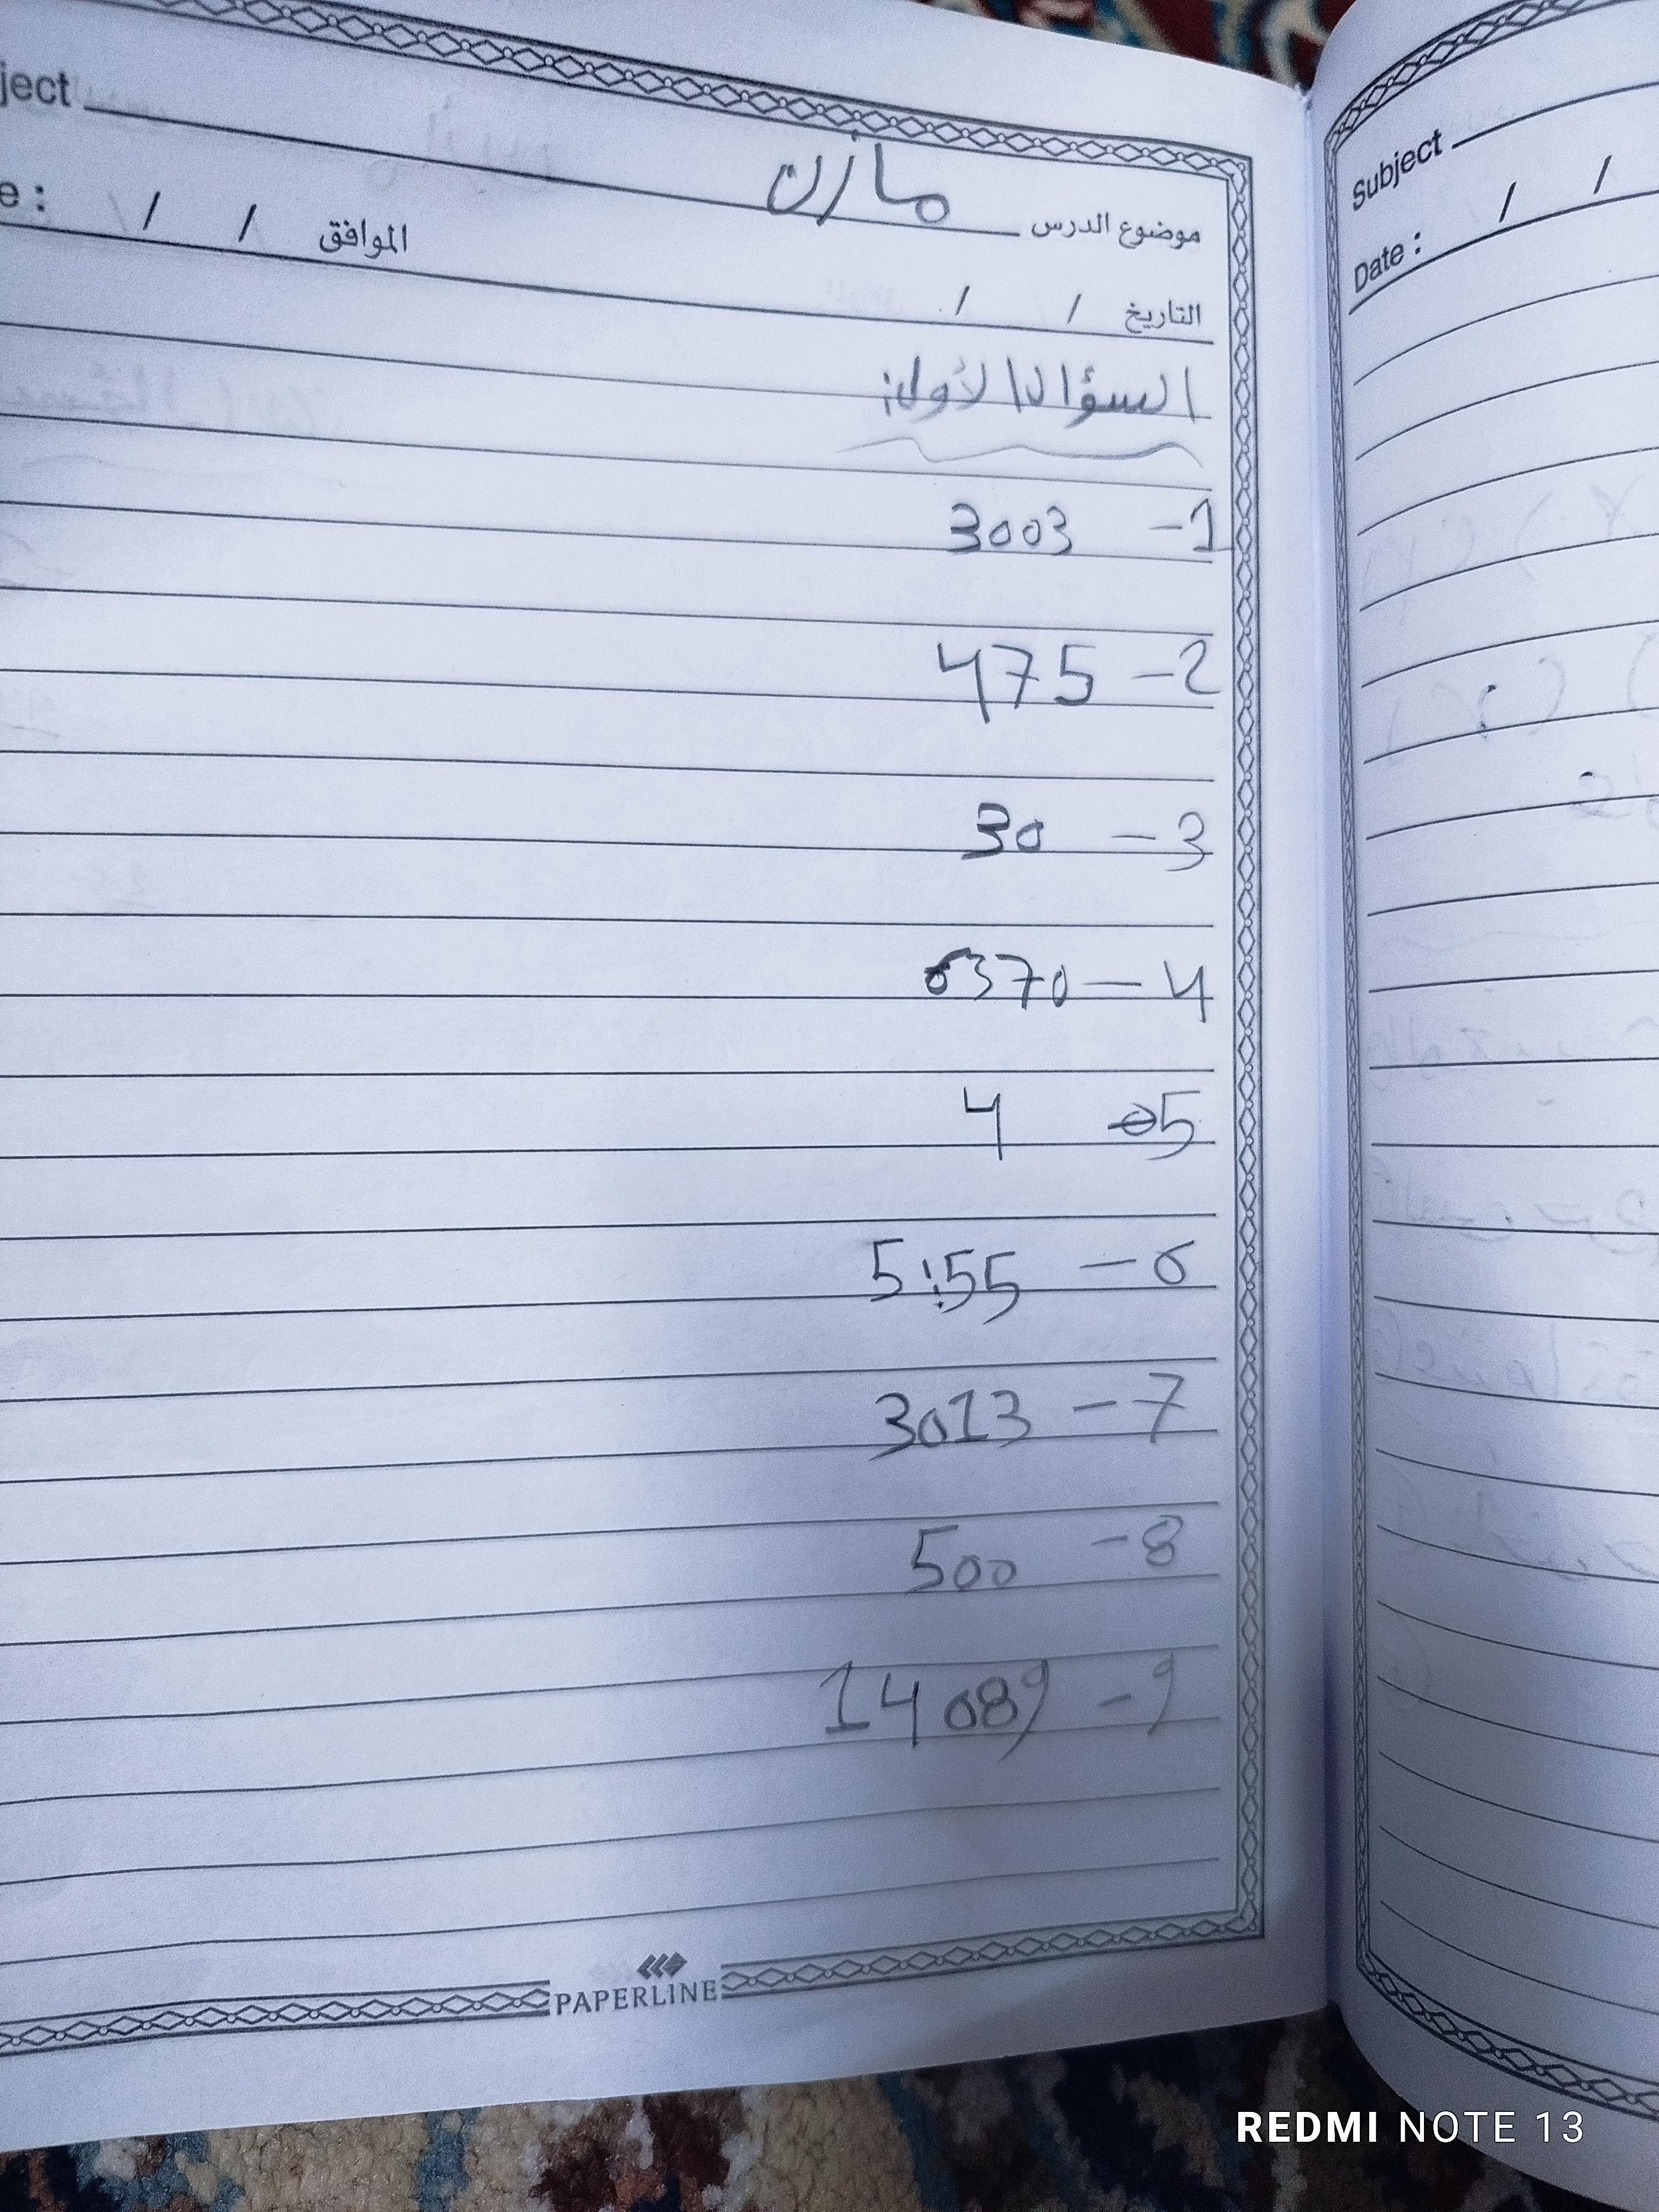 ject
مازن
موضوع الدرس
e : / / الموافق
التاريخ / /
السؤال الأول:
1- 3003
2- 475
3- 30
4- 6370
5- 4
6- 5:55
7- 3013
8- 500
9- 14089
PAPERLINE
Subject
Date : / /
REDMI NOTE 13